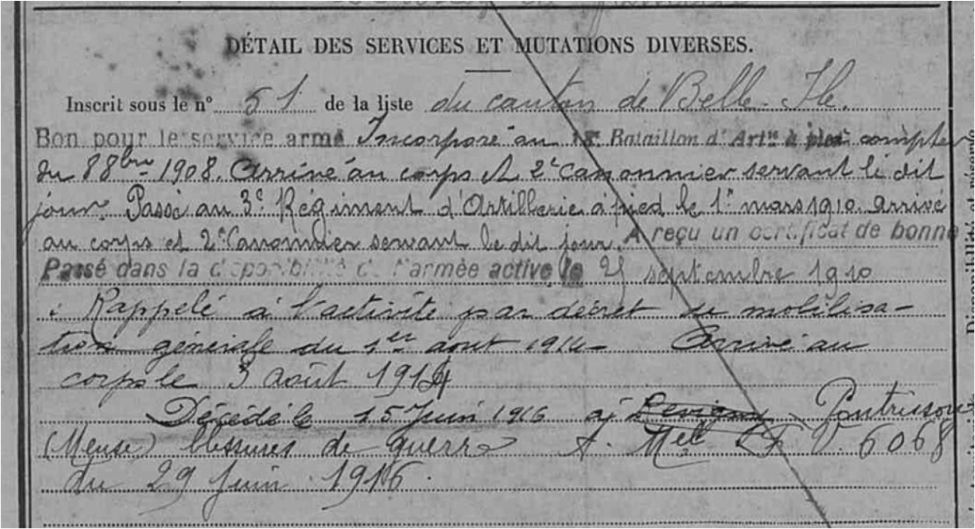 DÉTAIL DES SERVICES ET MUTATIONS DIVERSES.
Inscrit sous le n° 51 de la liste du canton de Belle-Ile.
Bon pour le service armé Incorporé au Bataillon d'Artie à pied à compter
du 8 8bre 1908. Arrivé au corps et 2e Canonnier servant le dit
jour. Passé au 3e Régiment d'Artillerie à pied le 1er mars 1910. Arrivé
au corps et 2e Canonnier servant le dit jour. A reçu un certificat de bonne
Passé dans la disponibilité de l'armée active, le 25 septembre 1910
Rappelé à l'activité par décret de mobilisa-
tion générale du 1er août 1914 - Arrivé au
corps le 3 août 1914
Décédé le 15 Juin 1916 à Revigny
(Meuse) blessures de guerre A. Mel V. 6068
du 29 Juin 1916.